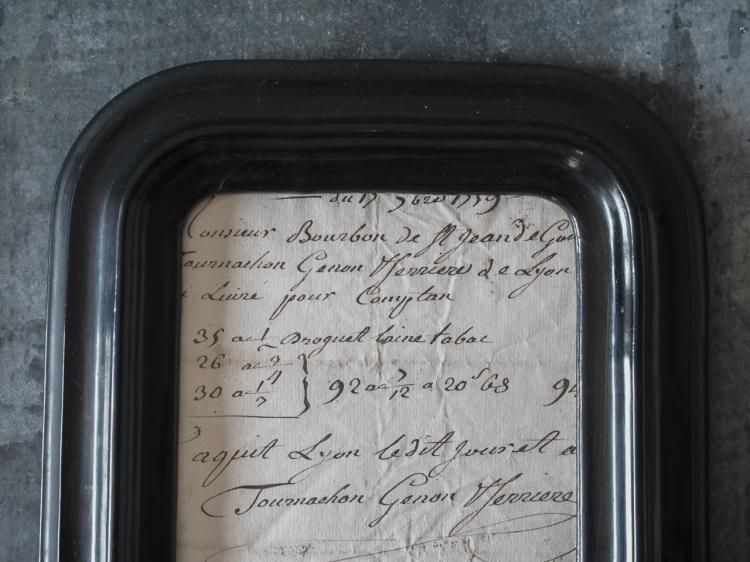 du 17 7bre 1779
Monsieur Bourbon de St Jean de
Tournachon Genon & Ferriere de Lyon
Livré pour Comptan
35 a 1/2 Droguet laine tabac
26 a
30 a } 92 a 7/12 a 20s 6d 94
acquit Lyon ledit jour et a
Tournachon Genon & Ferriere